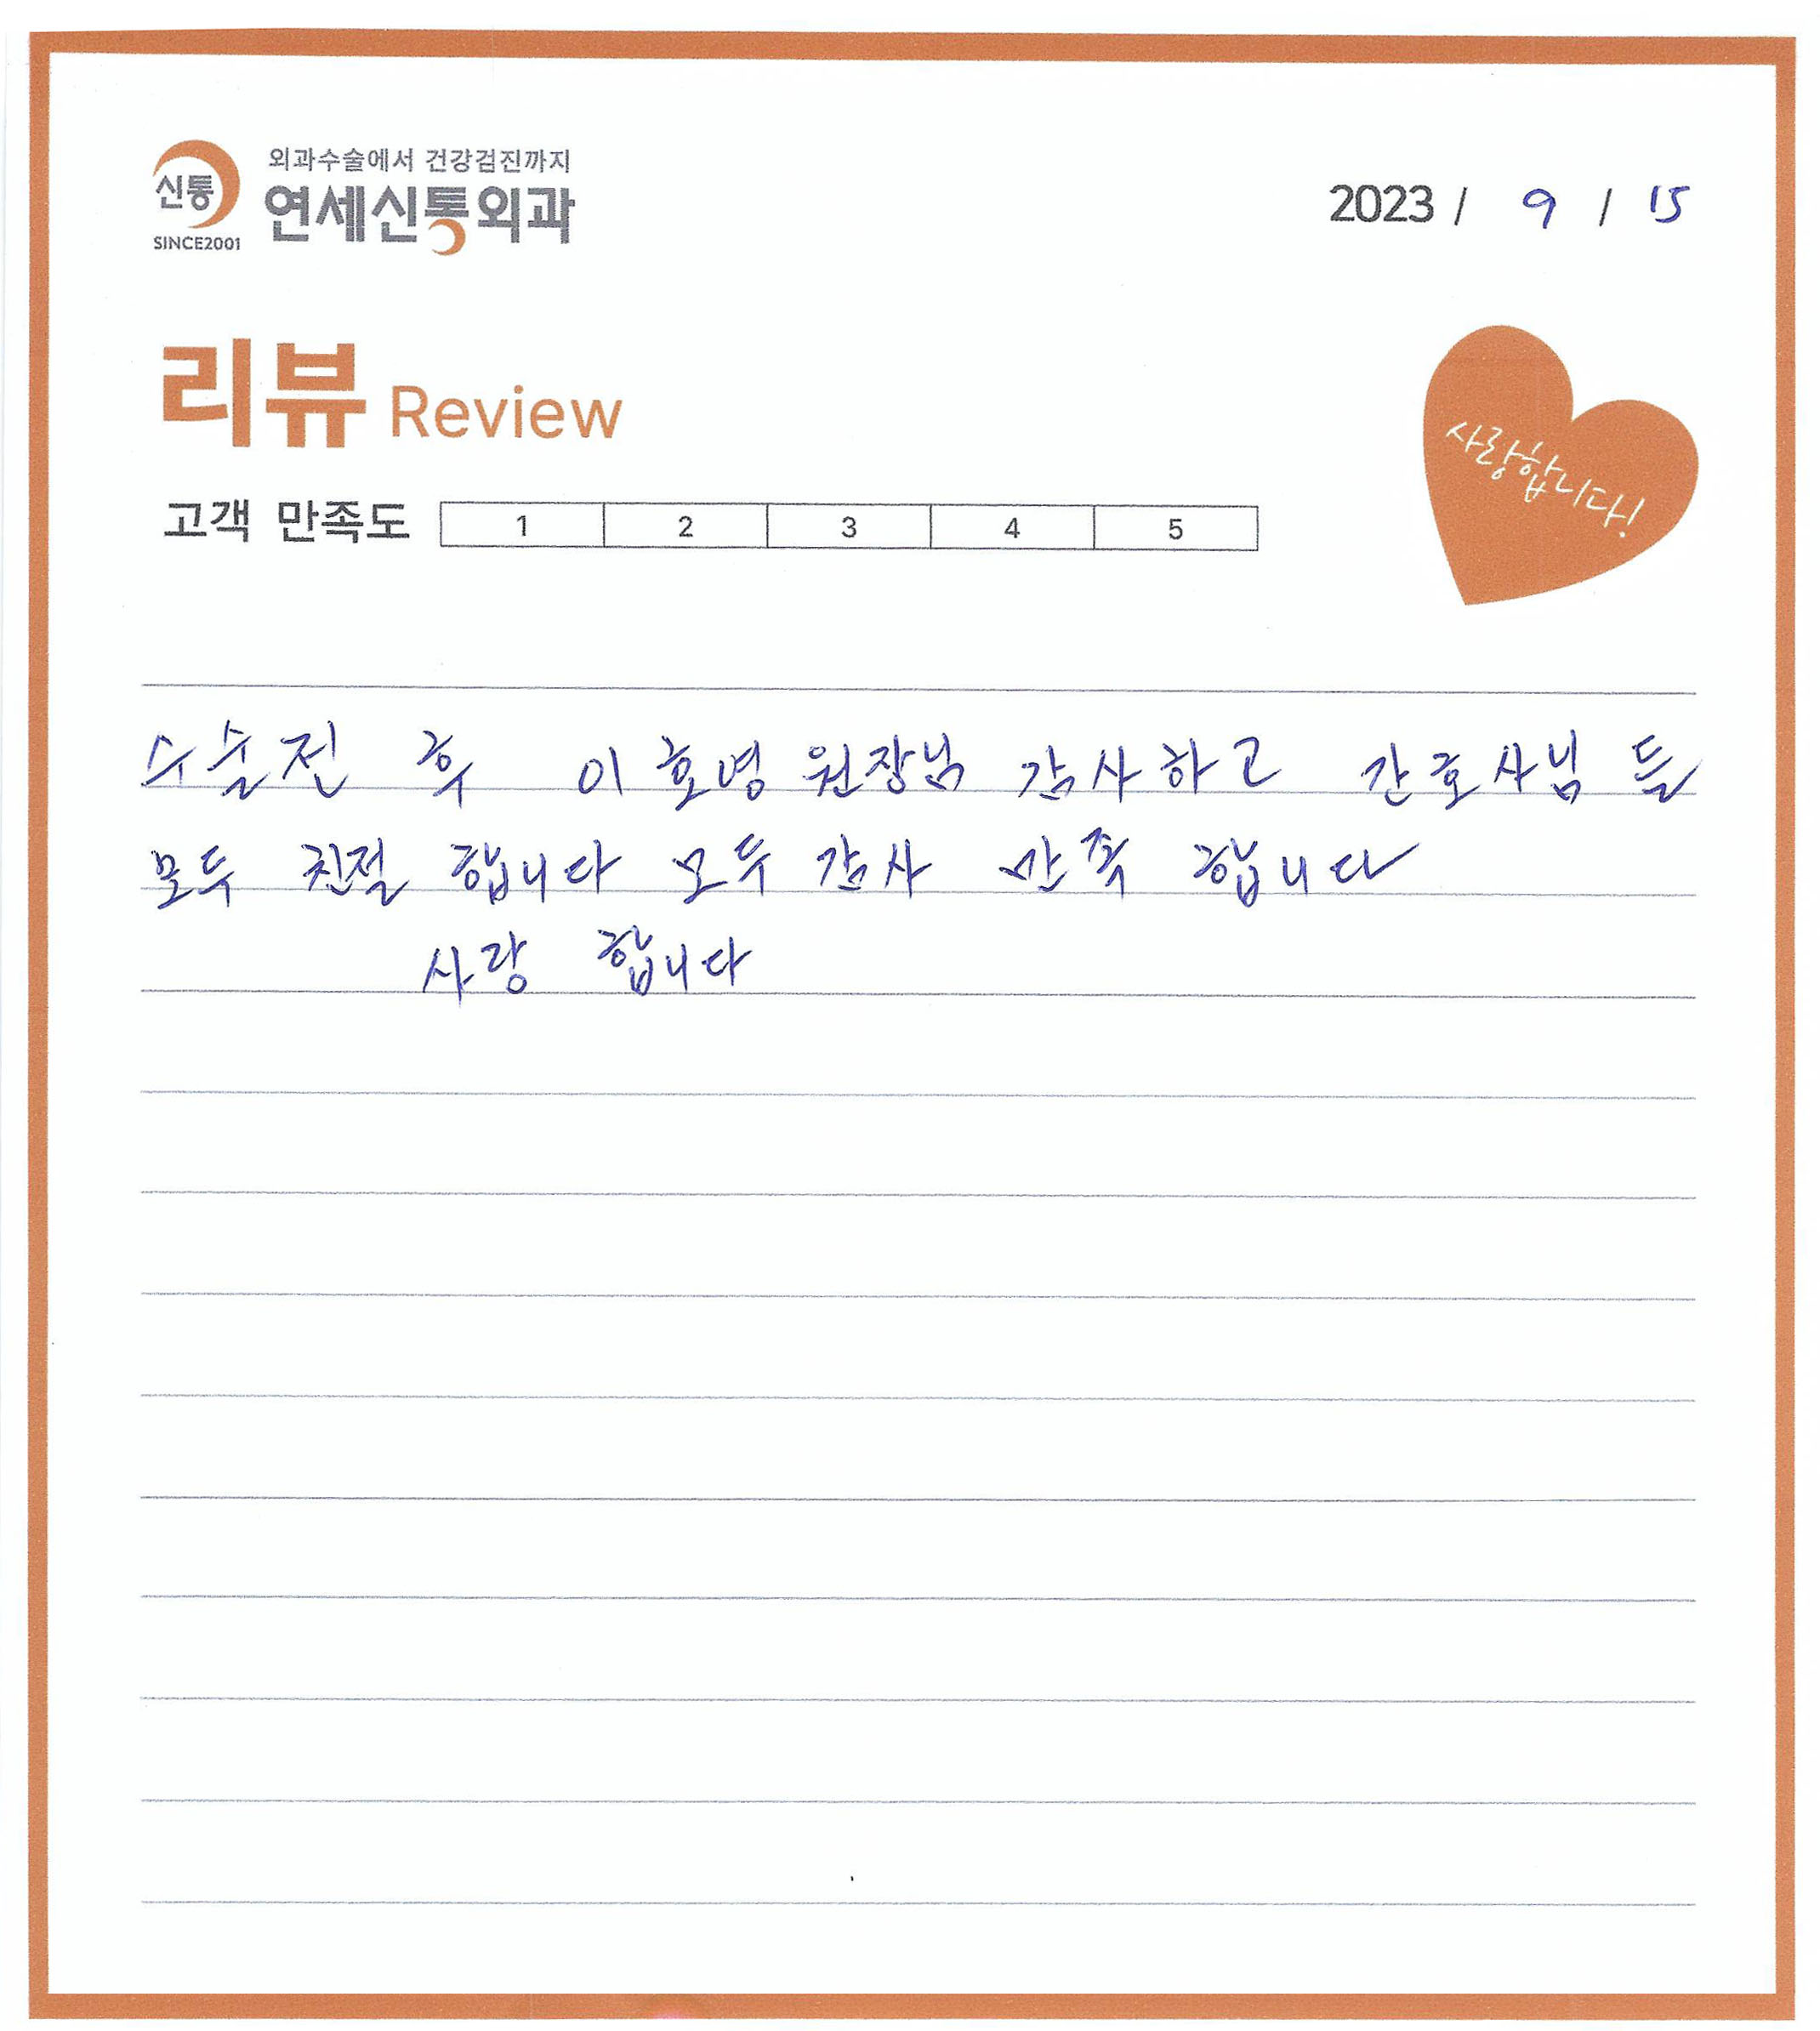 신통
SINCE2001
외과수술에서 건강검진까지
연세신통외과
2023 / 9 / 15
리뷰 Review
사랑합니다!
고객 만족도 1 2 3 4 5
수술전 후 이호영 원장님 감사하고 간호사님 들
모두 친절 합니다 모두 감사 만족 합니다
사랑 합니다